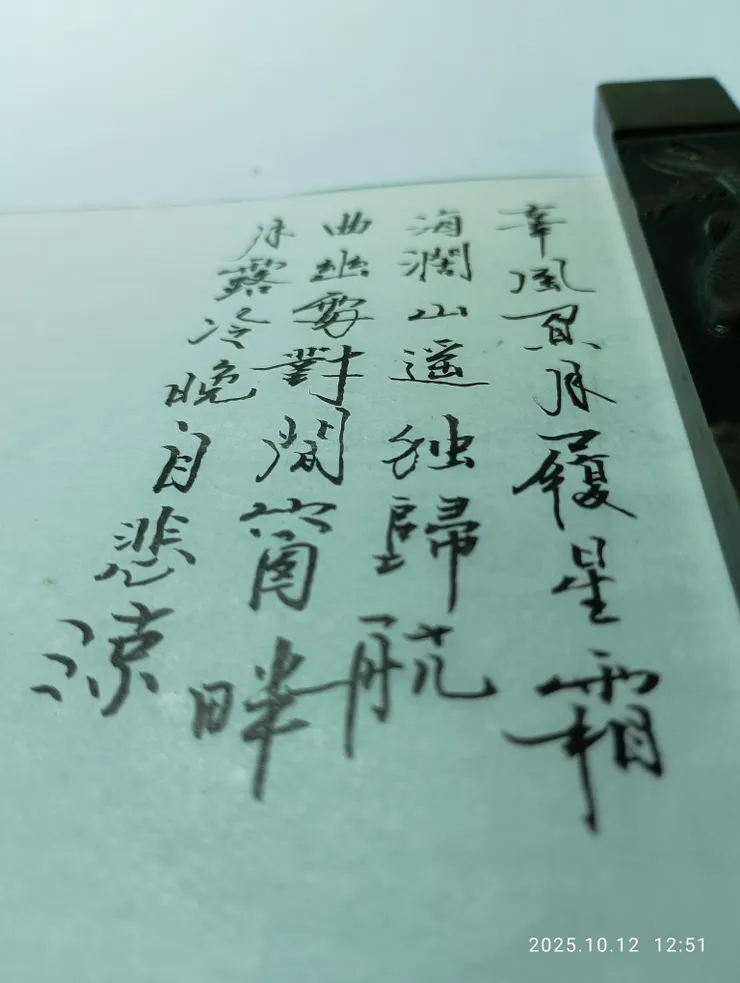 辜風負月履星霜
海濶山遥独歸航
曲幽對閒窗畔
月露冷晚自悲涼
2025.10.12 12:51